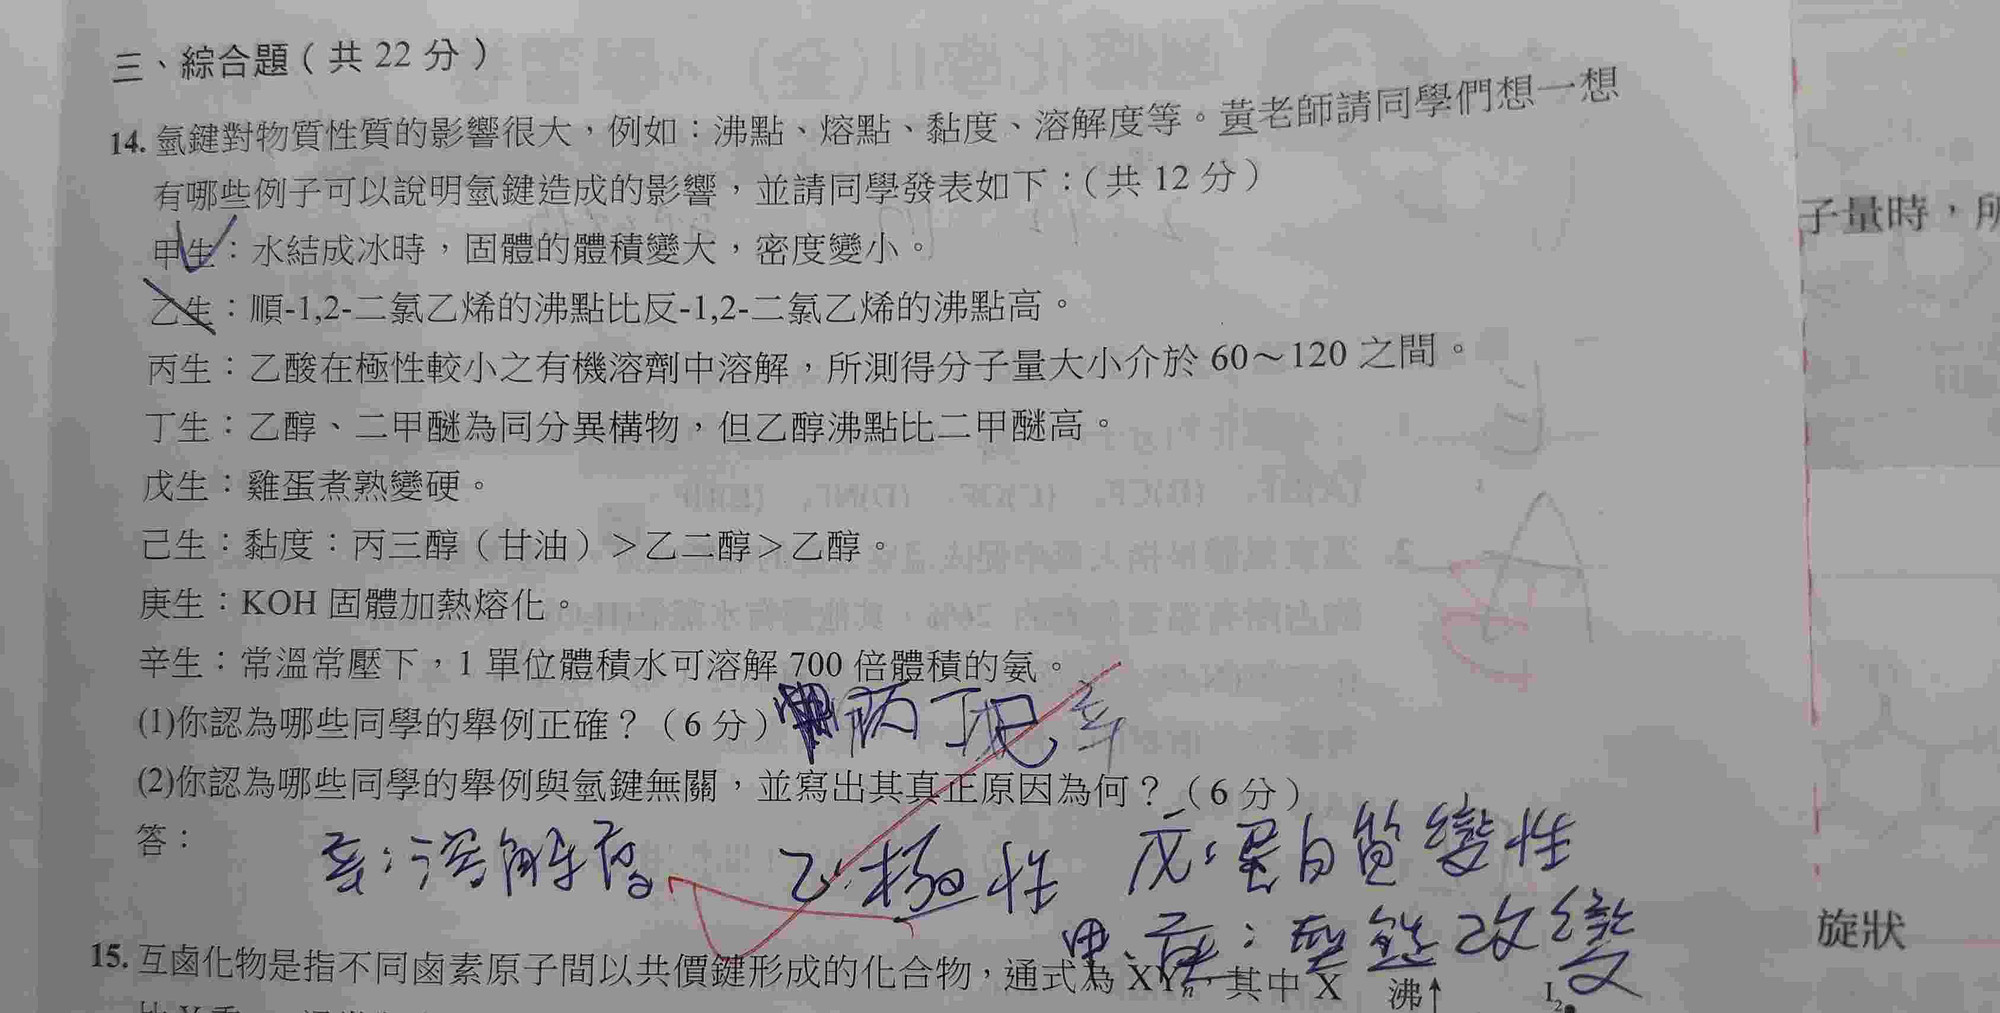 三、綜合題（共 22 分）
14. 氫鍵對物質性質的影響很大，例如：沸點、熔點、黏度、溶解度等。黃老師請同學們想一想
有哪些例子可以說明氫鍵造成的影響，並請同學發表如下：（共 12 分）
子量時，所
甲生：水結成冰時，固體的體積變大，密度變小。
乙生：順-1,2-二氯乙烯的沸點比反-1,2-二氯乙烯的沸點高。
丙生：乙酸在極性較小之有機溶劑中溶解，所測得分子量大小介於 60～120 之間。
丁生：乙醇、二甲醚為同分異構物，但乙醇沸點比二甲醚高。
戊生：雞蛋煮熟變硬。
己生：黏度：丙三醇（甘油）＞乙二醇＞乙醇。
庚生：KOH 固體加熱熔化。
辛生：常溫常壓下，1 單位體積水可溶解 700 倍體積的氨。
(1)你認為哪些同學的舉例正確？（6 分）丙丁己辛
(2)你認為哪些同學的舉例與氫鍵無關，並寫出其真正原因為何？（6 分）
答：
辛：溶解度 乙：極性 戊：蛋白質變性
甲、庚：型鍵改變
旋狀
15. 互鹵化物是指不同鹵素原子間以共價鍵形成的化合物，通式為 XYn，其中 X
沸↑ I2